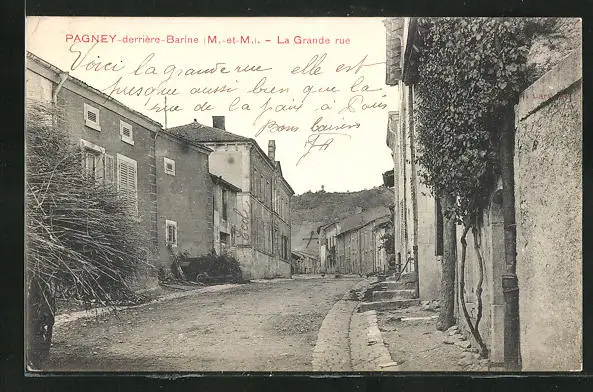 PAGNEY-derrière-Barine (M.-et-M.). - La Grande rue
Voici la grande rue elle est
presque aussi bien que la
rue de la paix à
Bons baisers